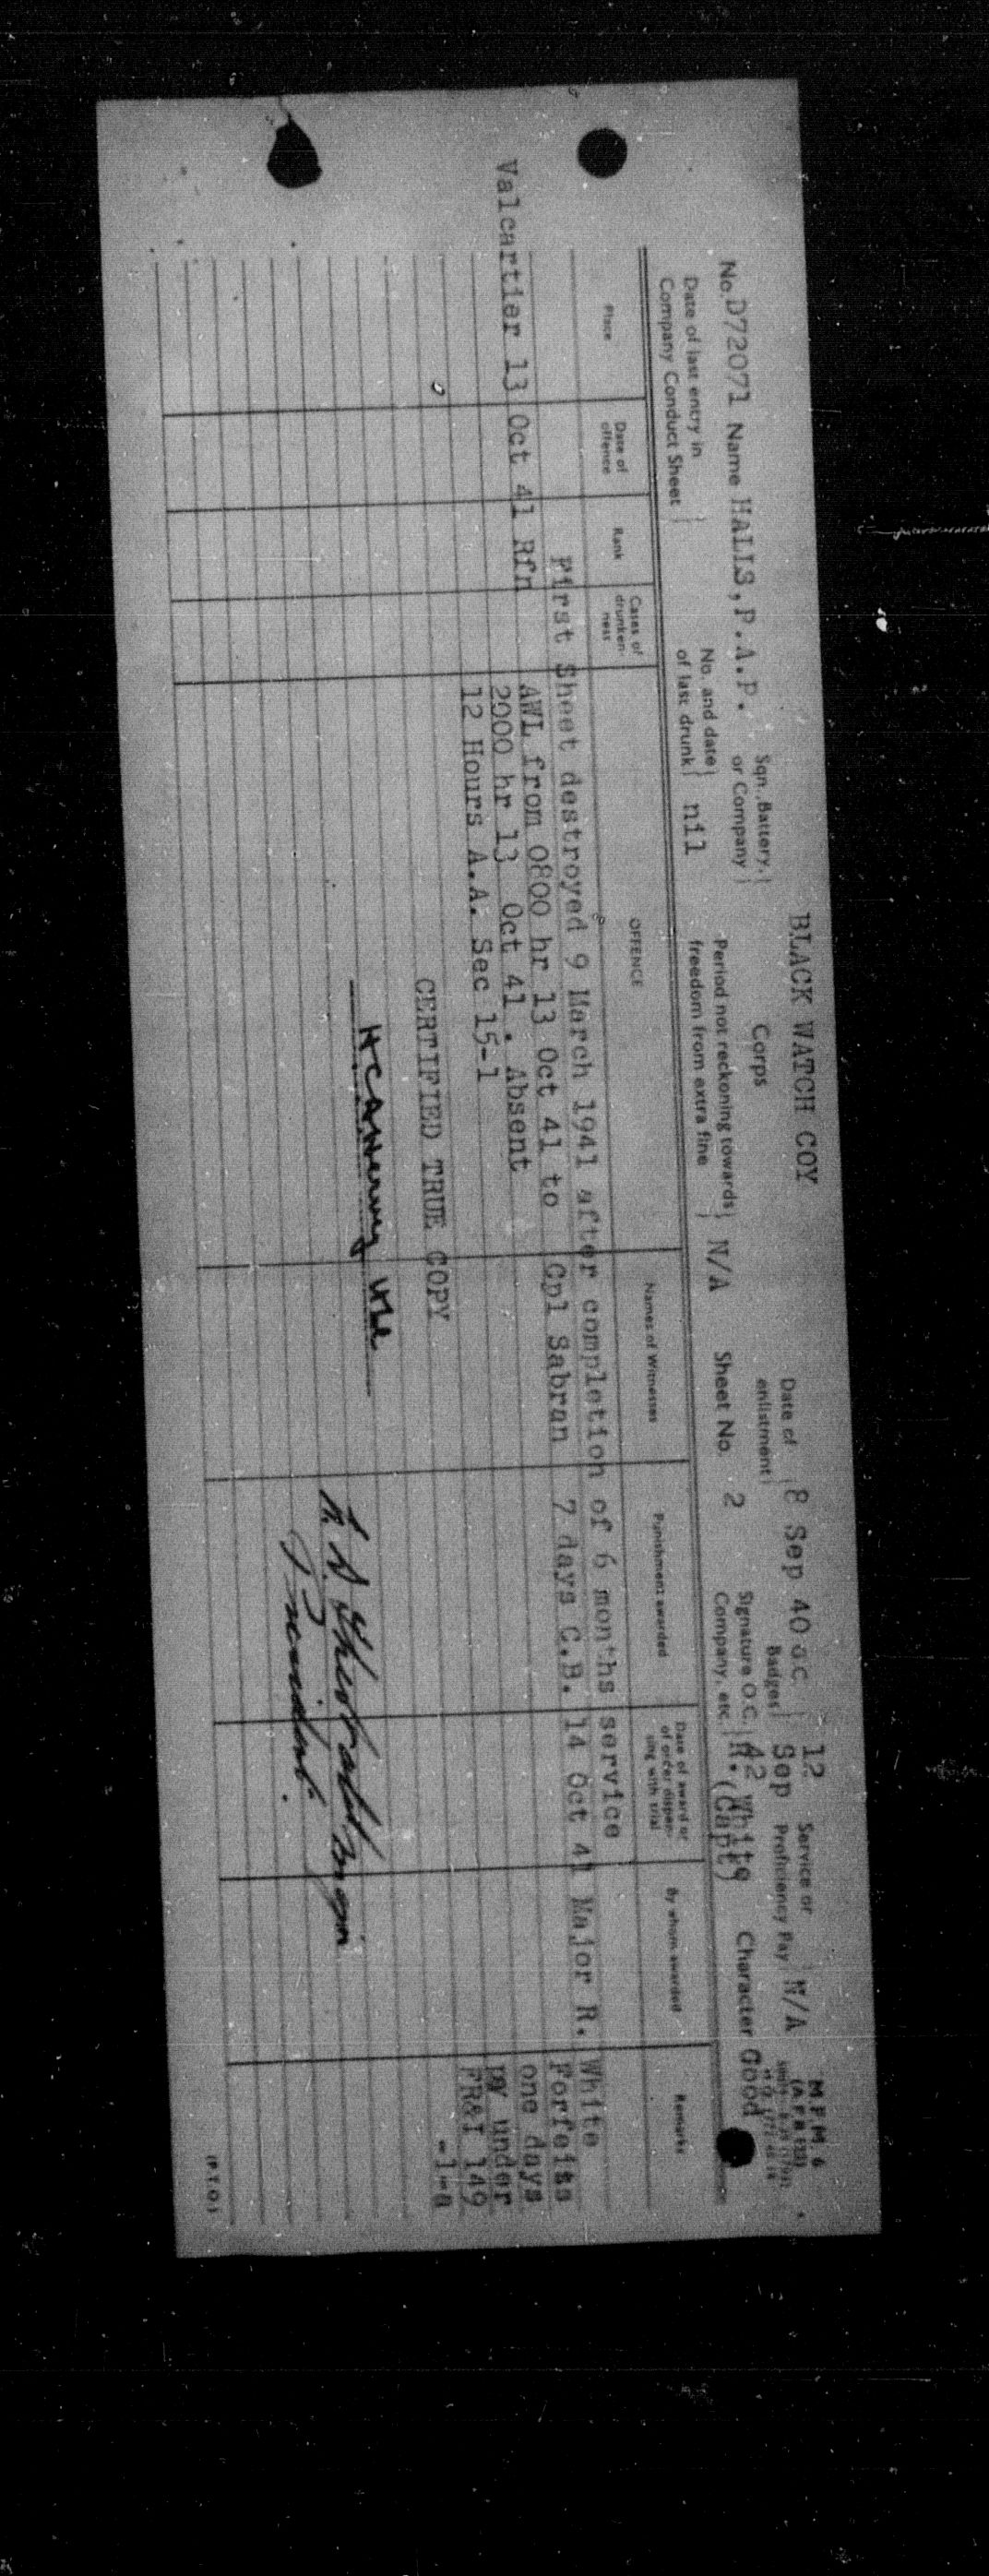 M.F.M. 6
BLACK WATCH COY
No. D72071 Name HALLS, P.A.P. Sqn., Battery, or Company Corps Date of enlistment 8 Sep 40 G.C. Badges 12 Sep 42 Service or Proficiency Pay N/A
Date of last entry in Company Conduct Sheet No. and date of last drunk nil Period not reckoning towards freedom from extra fine N/A Sheet No. 2 Signature O.C. Company, etc. R. White (Capt) Character Good
Place Date of offence Rank Cases of drunken-ness OFFENCE Names of Witnesses Punishment awarded Date of award or of order dispen-sing with trial By whom awarded Remarks
First Sheet destroyed 9 March 1941 after completion of 6 months service
Valcartier 13 Oct 41 Rfn AWL from 0800 hr 13 Oct 41 to Cpl Sabran 7 days C.B. 14 Oct 41 Major R. White
2000 hr 13 Oct 41. Absent Forfeits
12 Hours A.A. Sec 15-1 one days
PAY under
FR&I 149
-1-a
CERTIFIED TRUE COPY
President.
(P.T.O.)